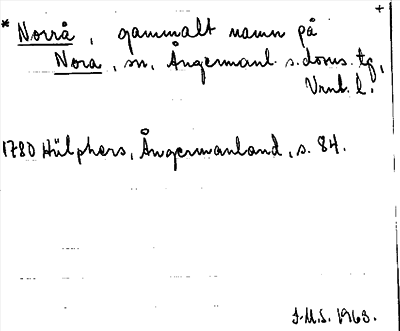 +
* Norrå, gammalt namn på
Nora, sn, Ångermanl. s. doms. tg,
Vrnl. l.
1780 Hülphers, Ångermanland, s. 84.
J.M.S. 1963.